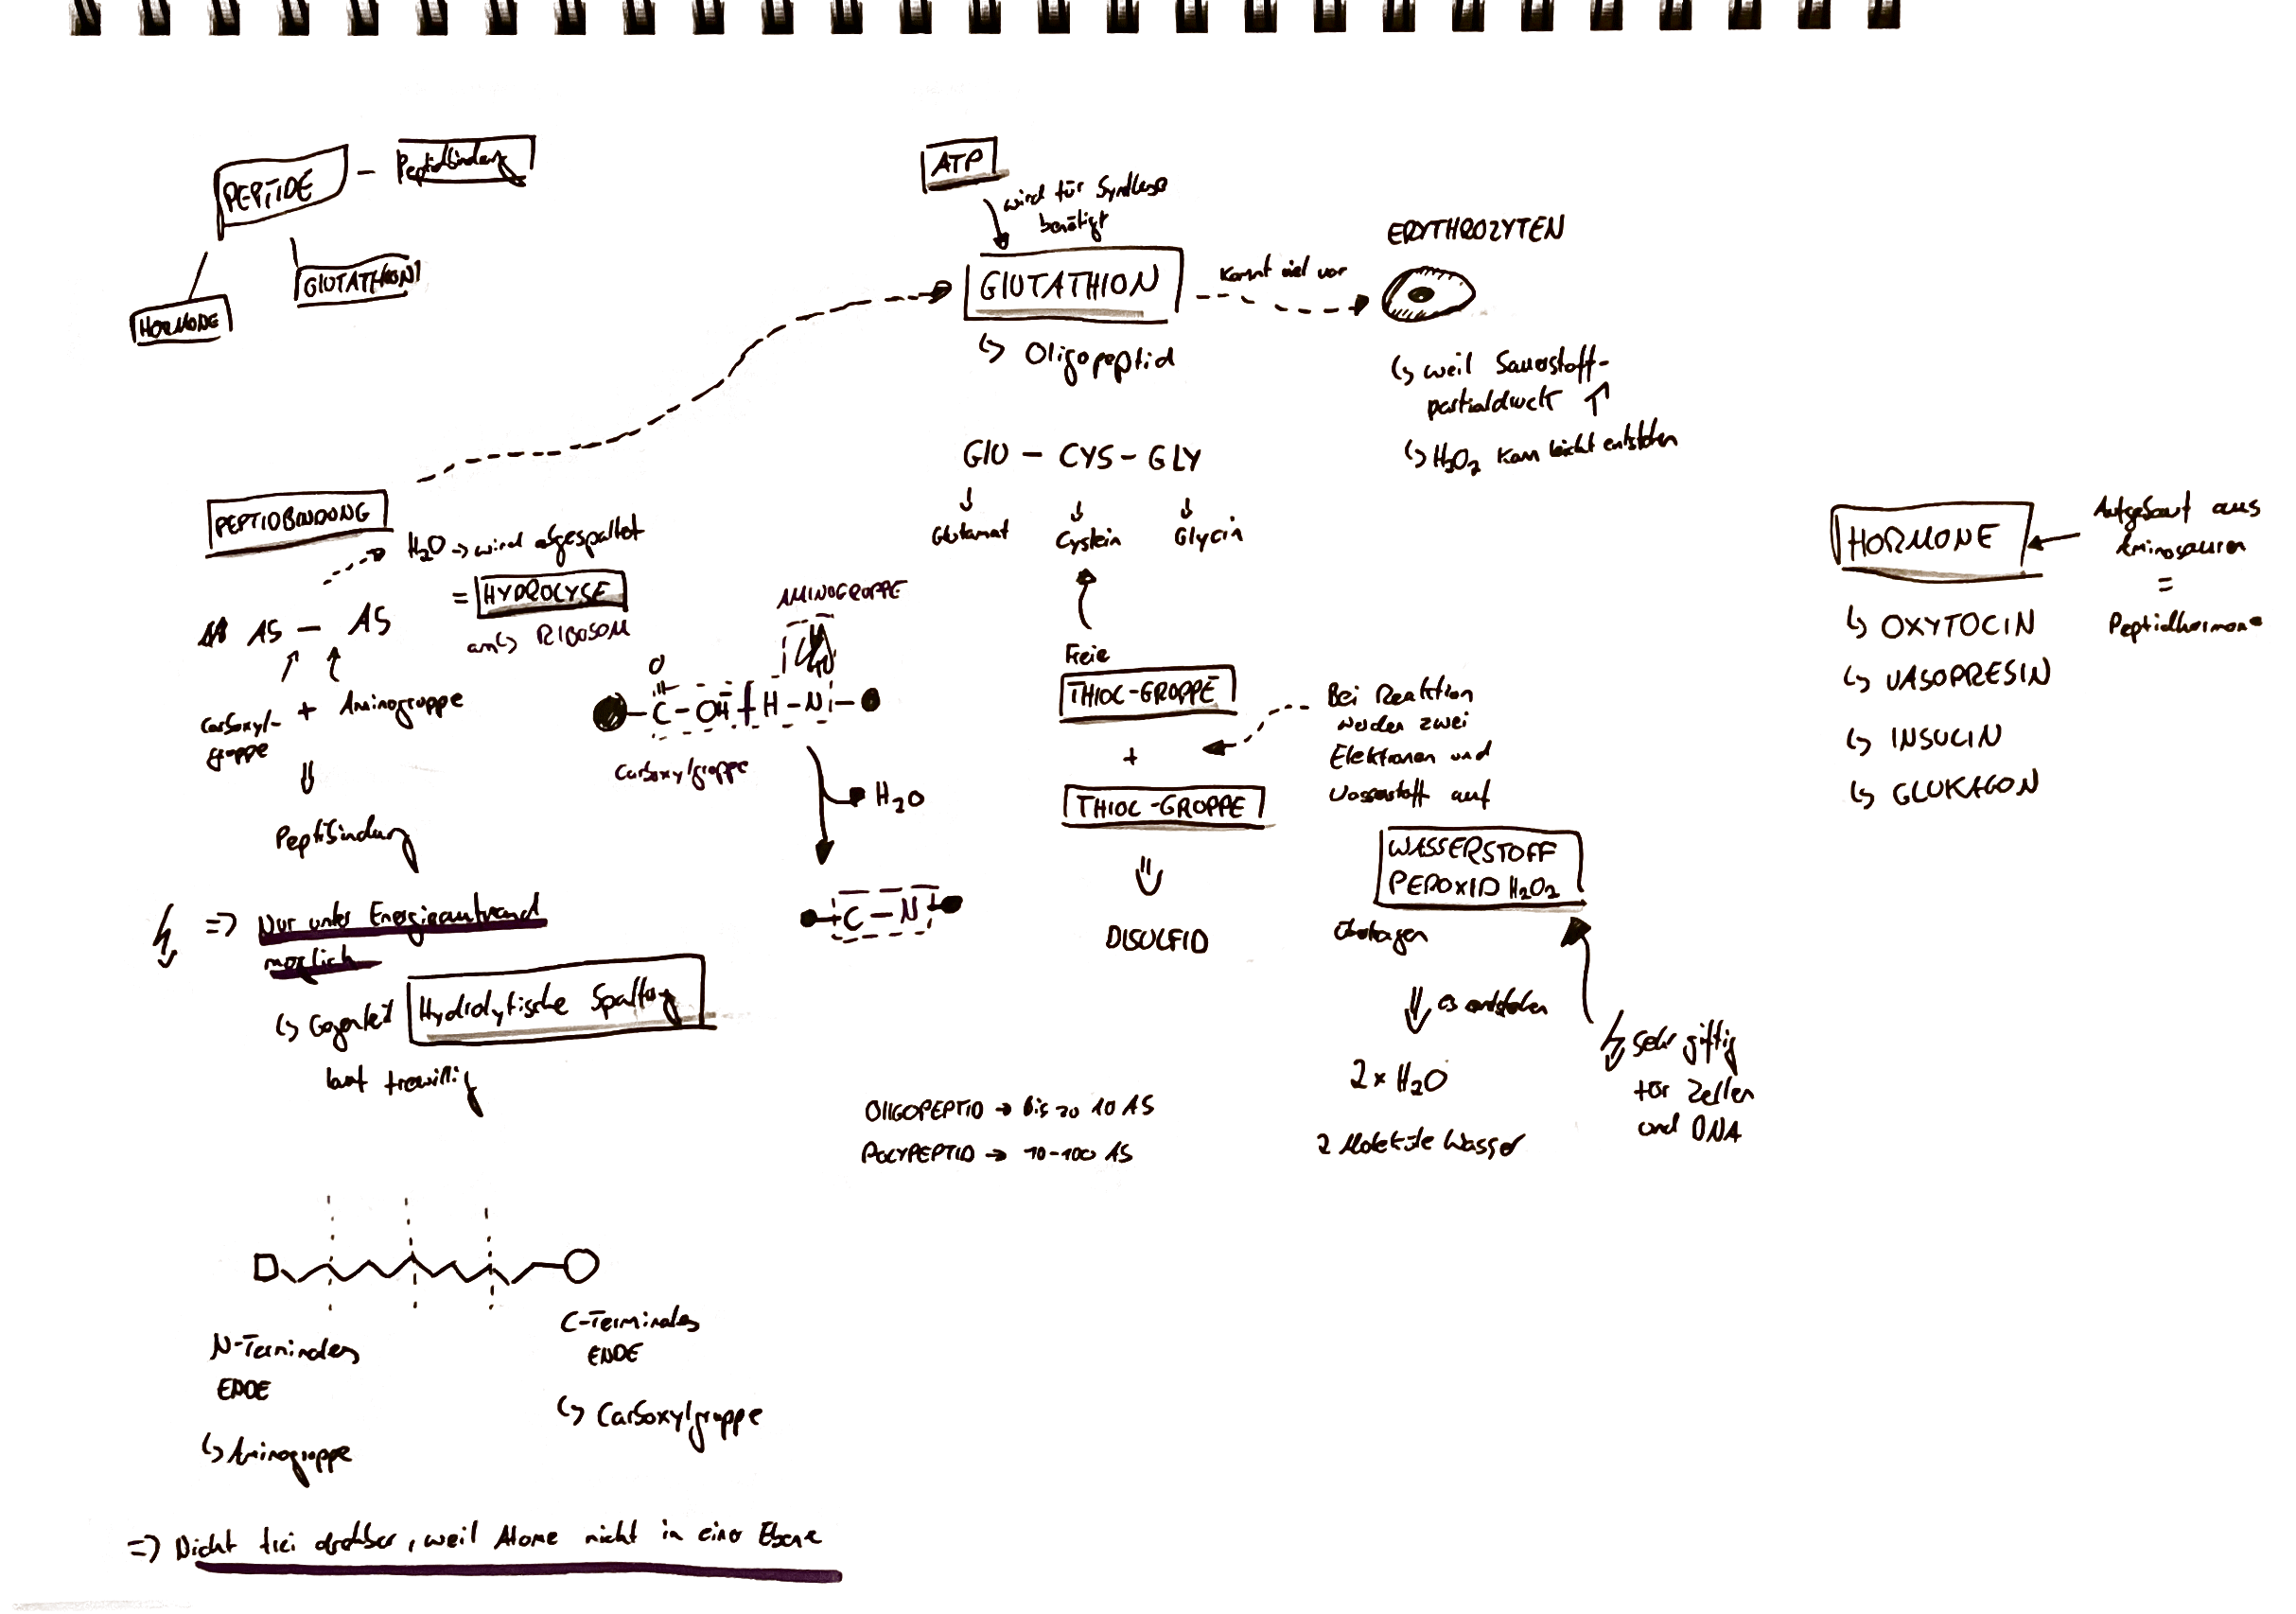 PEPTIDE – Peptidbindung
HORMONE
GLUTATHION
PEPTIDBINDUNG
H₂O → wird abgespaltet
= HYDROLYSE
an ↳ RIBOSOM
AS – AS
Carboxyl-
gruppe
+ Aminogruppe
⇓
Peptibindung
⇒ Nur unter Energieaufwand
möglich
↳ Gegenteil Hydrolytische Spaltung
AMINOGRUPPE
O
C – OH + H – N
Carboxylgruppe
H₂O
C – N
N-Terminales
ENDE
↳ Aminogruppe
C-Terminales
ENDE
↳ Carboxylgruppe
⇒ Nicht frei drehbar, weil Atome nicht in einer Ebene
ATP
wird für Synthese
benötigt
GLUTATHION
↳ Oligopeptid
kommt viel vor
ERYTHROZYTEN
↳ weil Sauerstoff-
partialdruck ↑
↳ H₂O₂ kann leicht entstehen
GLU – CYS – GLY
Glutamat
Cystein
Glycin
Freie
THIOL-GRUPPE
+
THIOL-GRUPPE
⇓
DISULFID
Bei Reaktion
werden zwei
Elektronen und
Wasserstoff auf
WASSERSTOFF
PEROXID H₂O₂
übertragen
⇓ es entstehen
2 × H₂O
2 Moleküle Wasser
sehr giftig
für Zellen
und DNA
OLIGOPEPTID → bis zu 10 AS
POLYPEPTID → 10-100 AS
HORMONE
Aufgebaut aus
Aminosäuren
=
Peptidhormone
↳ OXYTOCIN
↳ VASOPRESIN
↳ INSULIN
↳ GLUKAGON